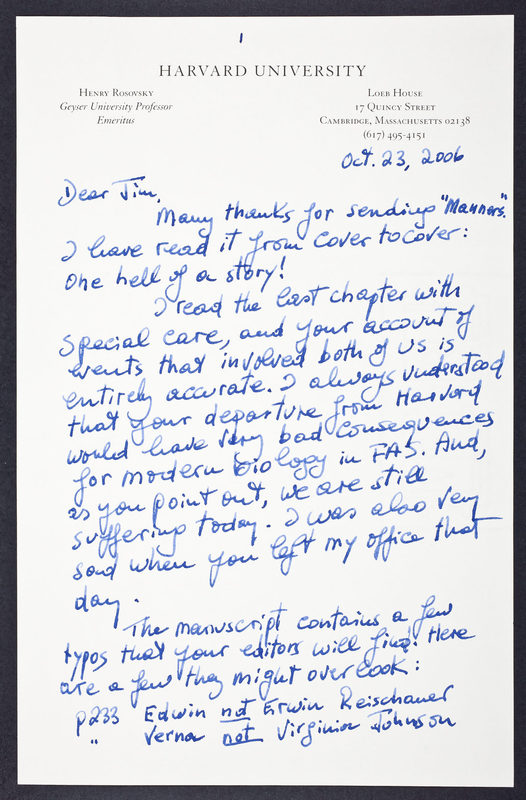 1
HARVARD UNIVERSITY
Henry Rosovsky
Geyser University Professor
Emeritus
Loeb House
17 Quincy Street
Cambridge, Massachusetts 02138
(617) 495-4151
Oct. 23, 2006
Dear Jim,
Many thanks for sending "Manners".
I have read it from cover to cover:
One hell of a story!
I read the last chapter with
special care, and your account of
events that involved both of us is
entirely accurate. I always understood
that your departure from Harvard
would have very bad consequences
for modern biology in FAS. And,
as you point out, we are still
suffering today. I was also very
sad when you left my office that
day.
The manuscript contains a few
typos that your editors will find. Here
are a few they might overlook:
p233 Edwin not Erwin Reischauer
" Verna not Virginia Johnson